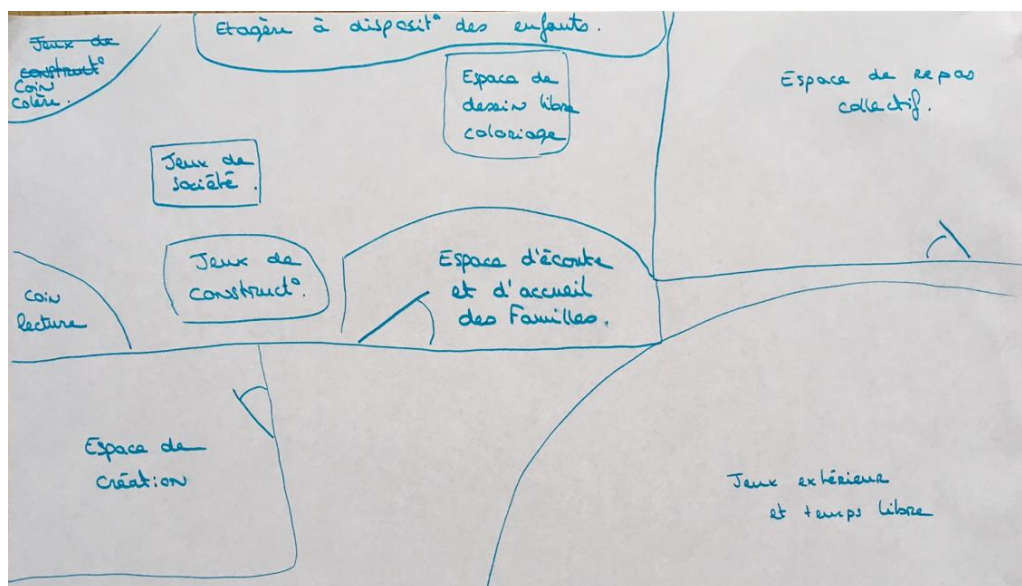 Jeux de
construct°
Coin
colère.
Etagère à disposit° des enfants.
Espace de
dessin libre
coloriage
Espace de repas
collectif.
Jeux de
société.
Jeux de
construct°.
Espace d'écoute
et d'accueil
des Familles.
coin
lecture
Espace de
création
Jeux extérieur
et temps libre